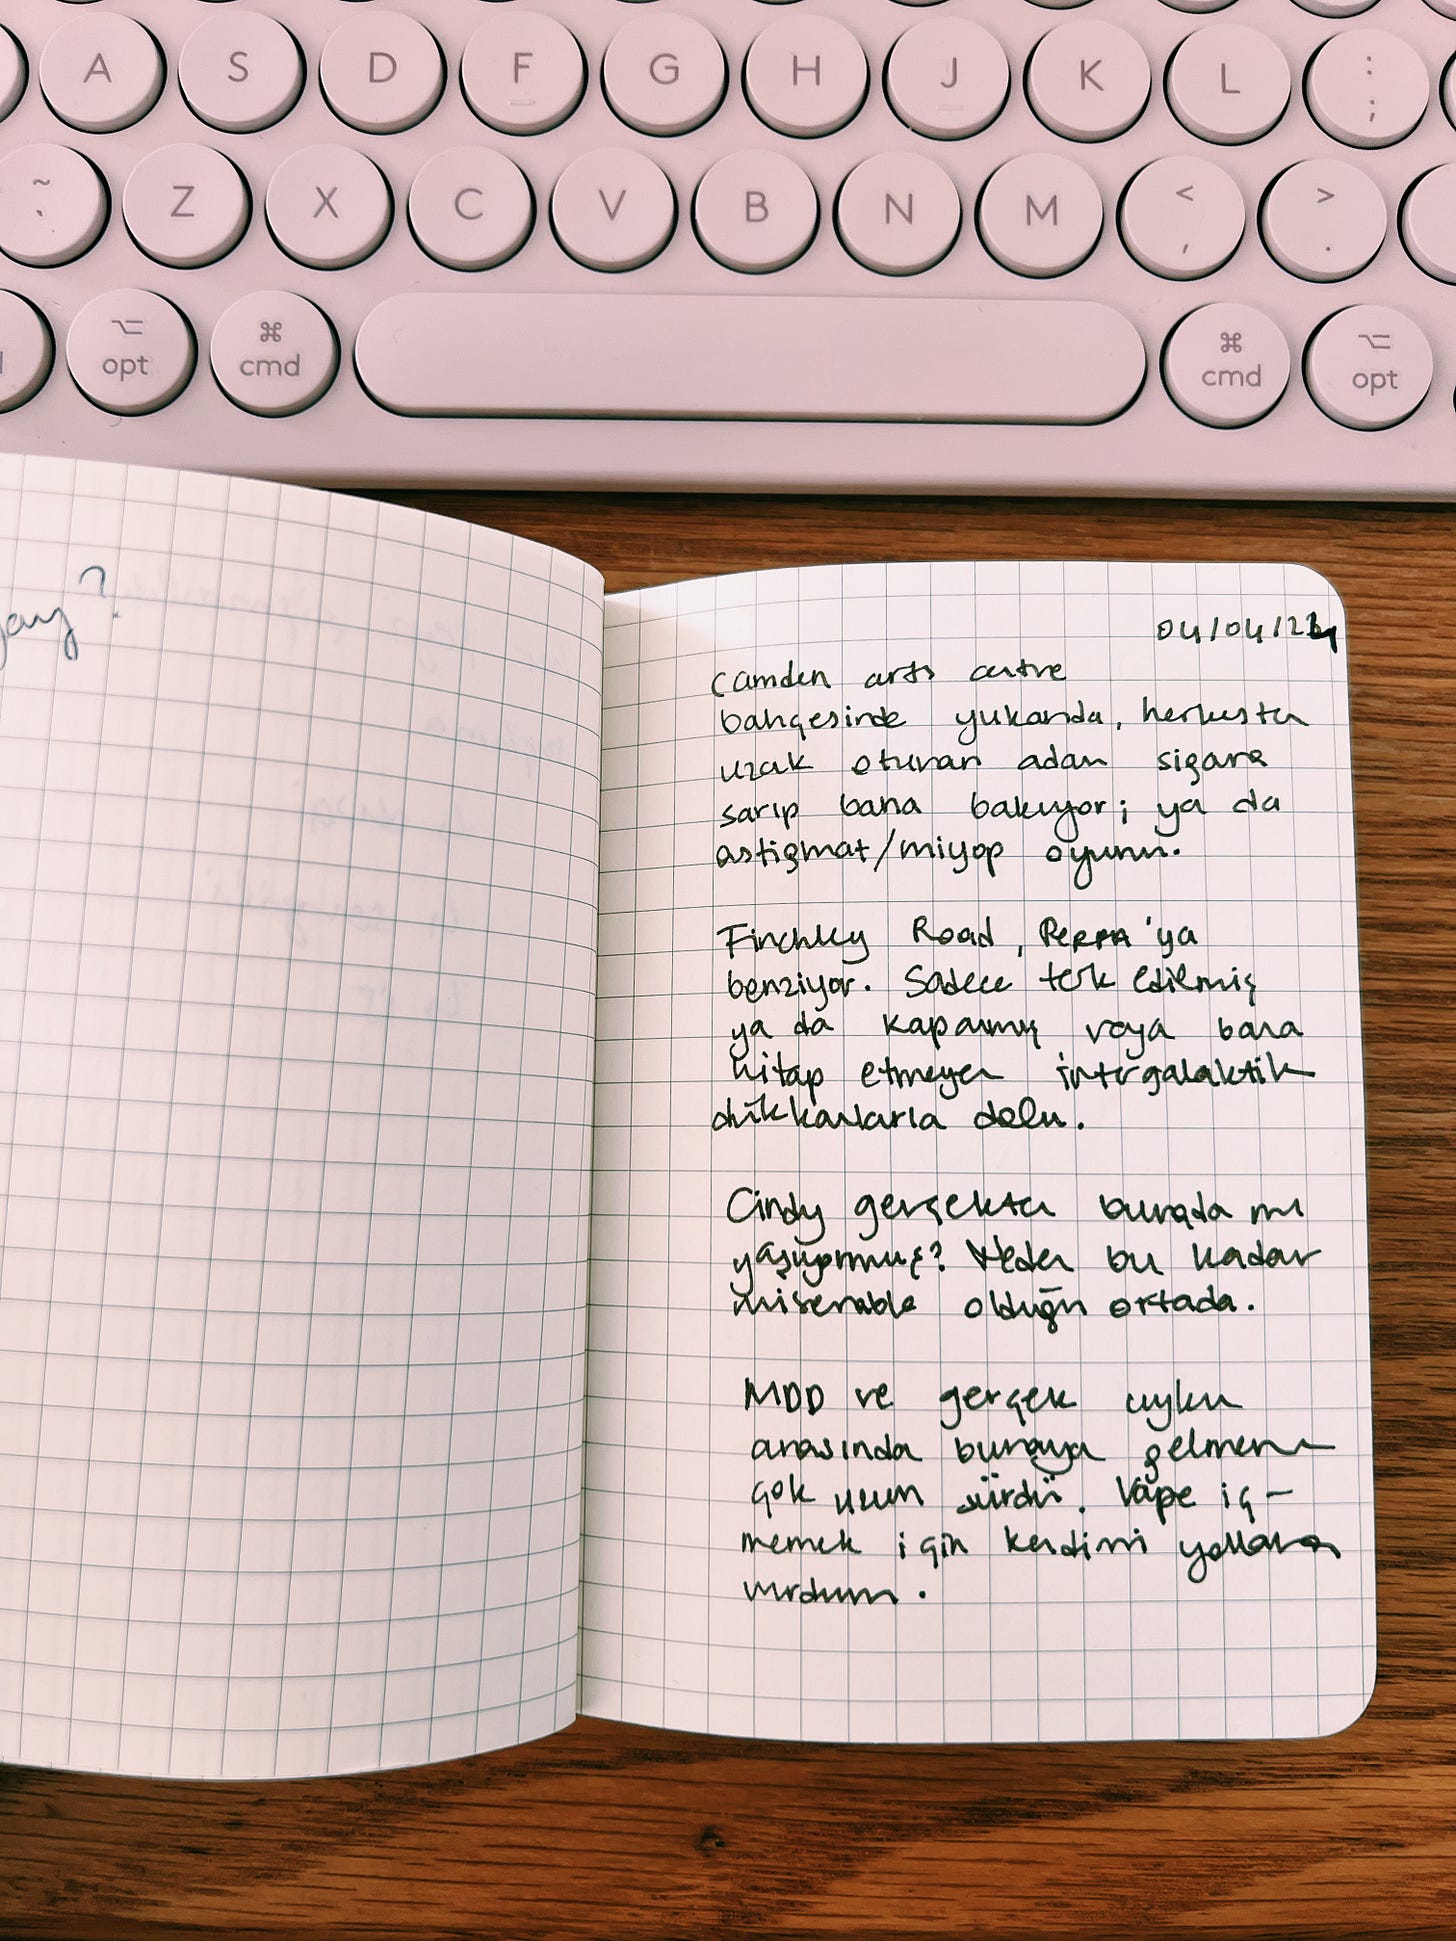 A S D F G H J K L : ;
~ ` Z X C V B N M < , > .
opt cmd cmd opt
?
04/04/24
Camden arts centre
bahçesinde yukarıda, herkesten
uzak oturan adam sigara
sarıp bana bakıyor; ya da
astigmat/miyop oyunu.
Finchley Road, PERPA'ya
benziyor. Sadece terk edilmiş
ya da kapanmış veya bana
hitap etmeyen intergalaktik
dükkanlarla dolu.
Cindy gerçekten burada mı
yaşıyormuş? Neden bu kadar
miserable olduğu ortada.
MDD ve gerçek uyku
arasında buraya gelmem
çok uzun sürdü. Vape iç-
memek için kendimi yollara
vurdum.